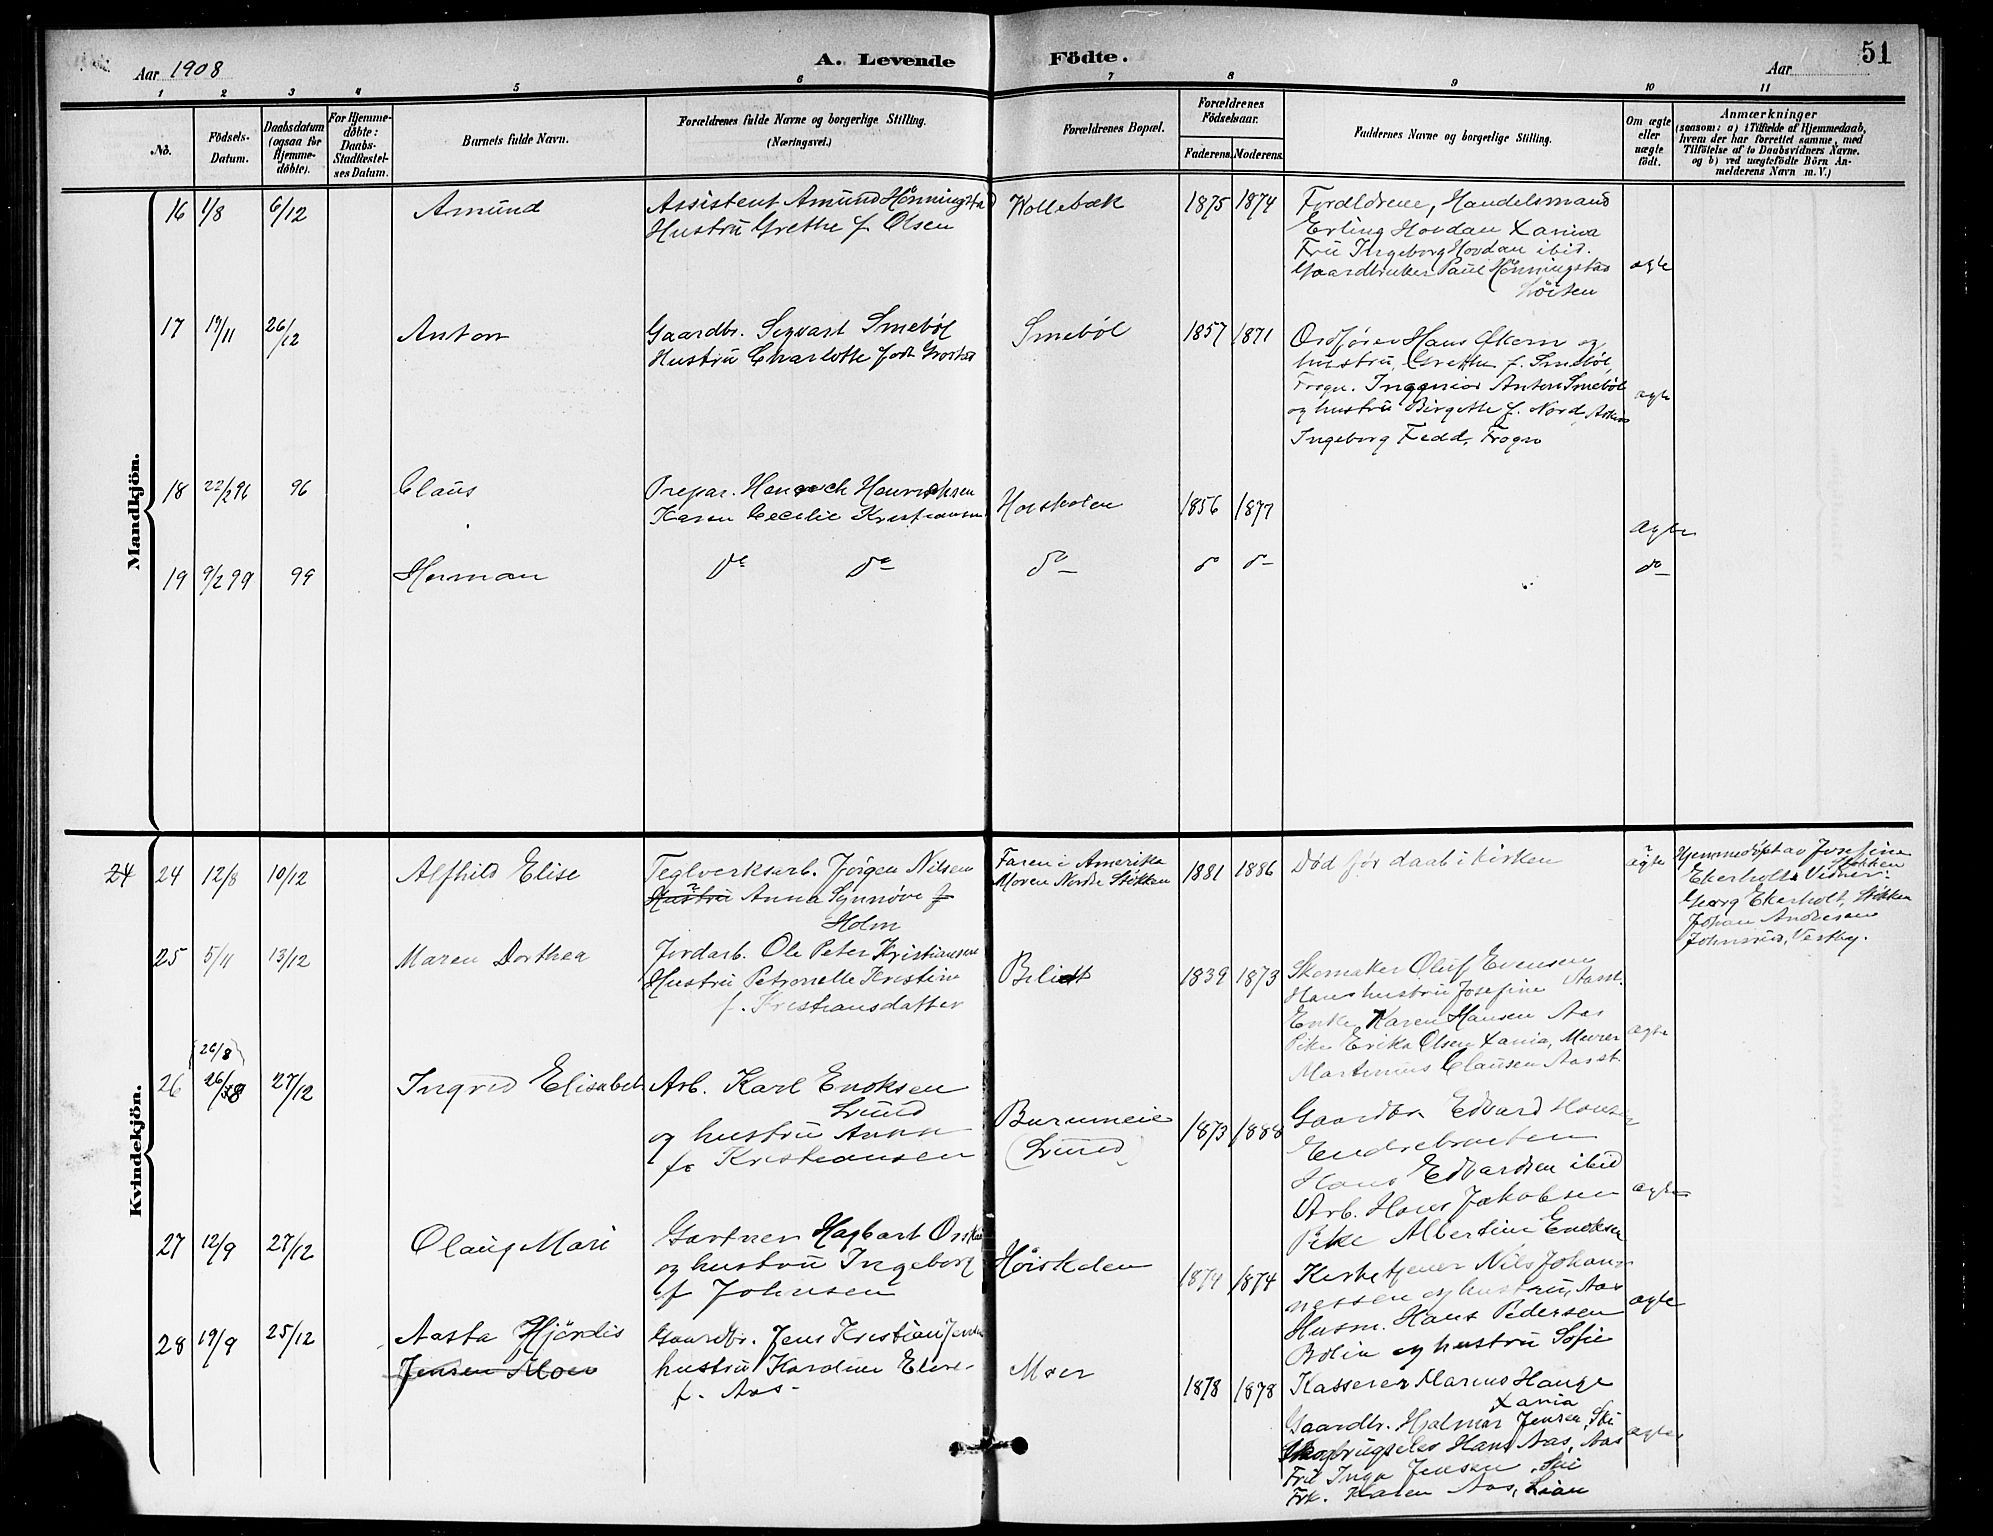 Aar 1908
A. Levende Födte.
Aar
51
1 2 3 4 5 6 7 8 9 10 11
No.
Födsels-Datum.
Daabsdatum (ogsaa for Hjemme-døbte).
For Hjemme-døbte: Daabs-Stadfæstel-ses Datum.
Barnets fulde Navn.
Forældrenes fulde Navne og borgerlige Stilling. (Næringsvei.)
Forældrenes Bopæl.
Forældrenes Födselsaar.
Faderens. Moderens.
Faddernes Navne og borgerlige Stilling.
Om ægte eller uægte födt.
Anmærkninger
(saasom: a) i Tilfælde af Hjemmedaab, hvem der har forrettet samme, med Tilføielse af to Daabsvidners Navne. og b) ved uægtefödte Börn An-melderens Navn m. V.)
Mandkjön.
16 1/8 6/12 Amund
Assistent Amund Hönningstad
Hustru Grethe f. Olsen
Kollebæk 1875 1874
Forældrene, Handelsmand
Erling Hovdan Xania
Fru Ingeborg Hovdan ibid.
Gaardbruker Paul Hönningstad
Löiten
ægte
17 19/11 26/12 Anton
Gaardbr. Sigvart Smeböl
Hustru Charlotte født
Smeböl 1857 1871
Ordfører Hans Økern og
hustru Grethe f. Smeböl,
Frogn. Ingeniør Anton Smeböl
og hustru Birgitte f. Nord,
Ingeborg Fedd, Frogn
ægte
18 22/2 96 96 Claus
Prepar. Henrich Henrichsen
Karen Cecilie Kristiansen
1856 1877
ægte
19 9/2 99 99 Herman
do do do do do
do
Kvindekjön.
24 24 12/8 10/12 Alfhild Elise
Teglverksarb. Jørgen Nilsen
Hustru Anna Synnøve f
Holm
Faren i Amerika
Moren Nordre Stökken
1881 1886
Død før daab i kirken
ægte
Hjemmedöpt av Josefine
Ekerholt, Stökken
Vidner:
Georg Ekerholt, Stökken
Johan Andresen
Johnsrud, Vestby.
25 5/11 13/12 Maren Dorthea
Jordarb. Ole Peter Kristiansen
Hustru Petronelle Kristine
f. Kristiansdatter
1839 1873
Skomaker Oluf Evensen
Hans hustru Josefine Aasst.
Enke Karen Hansen Aas
Pike Erika Olsen Xania, Murer
Martinius Clausen Aasst.
ægte
(26/8)
26 26/8 27/12 Ingrid Elisabet
Arb. Karl Enoksen
Lund
og hustru Anna
f. Kristiansen
Burumeie
(Lund)
1873 1888
Gaardbr. Edvard Hansen
Endrebraaten
Hans Edvardsen ibid
Arb. Hans Jakobsen
Pike Albertine Enoksen
ægte
27 12/9 27/12 Olaug Mari
Gartner Hagbart
og hustru Ingeborg
f Johnsen
1874 1874
Kirketjener Nils Johan-
nessen og hustru, Aas
Husm. Hans Pedersen
Bölin og hustru Sofie
ægte
28 19/9 25/12 Aasta Hjördis
Jensen Moer
Gaardbr. Jens Kristian Jensen
hustru Karoline Elise
f. Aas
Moer
1878 1878
Kasserer Marius Hauge
Xania
Gaardbr. Hjalmar Jensen, Ski
Skogbrugselev Hans Aas, Aas
Frk Inga Jensen, Ski
Frk. Karen Aas, Lian
ægte